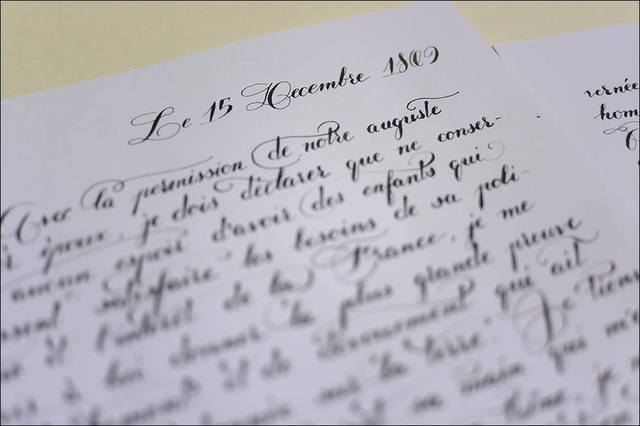 Le 15 Decembre 1809
Avec la permission de notre auguste
époux, je dois déclarer que ne conser-
aucun espoir d'avoir des enfants qui
satisfaire les besoins de sa poli-
et l'intérêt de la France, je me
à lui donner la plus grande preuve
et de dévouement qui ait
sur la terre. Je tiens
main qui m'
vernée
hom